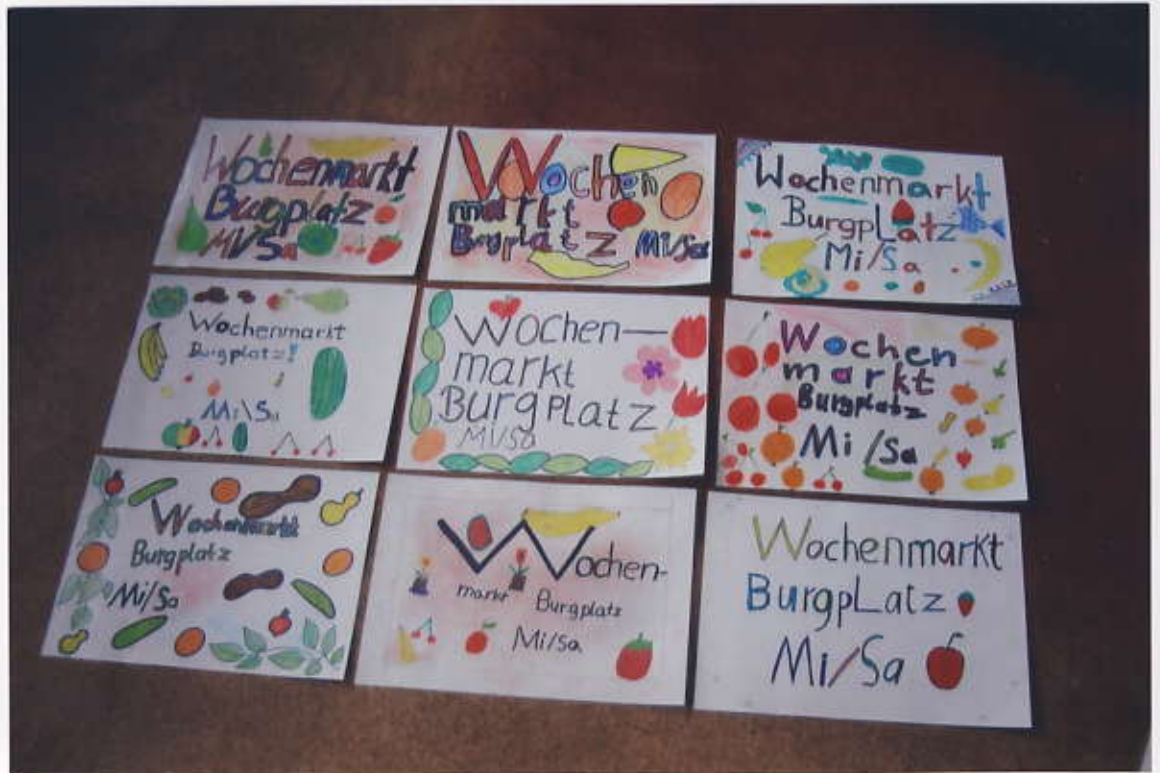 Wochenmarkt
Burgplatz
Mi/Sa
Wochen
markt
Burgplatz Mi/Sa
Wochenmarkt
BurgpLatz
Mi/Sa
Wochenmarkt
Burgplatz!
Mi\Sa
Wochen-
markt
BurgPlatz
Mi/Sa
Wochen
markt
Burgplatz
Mi/Sa
Wochenmarkt
Burgplatz
Mi/Sa
Wochen-
markt Burgplatz
Mi/Sa
Wochenmarkt
BurgpLatz
Mi/Sa